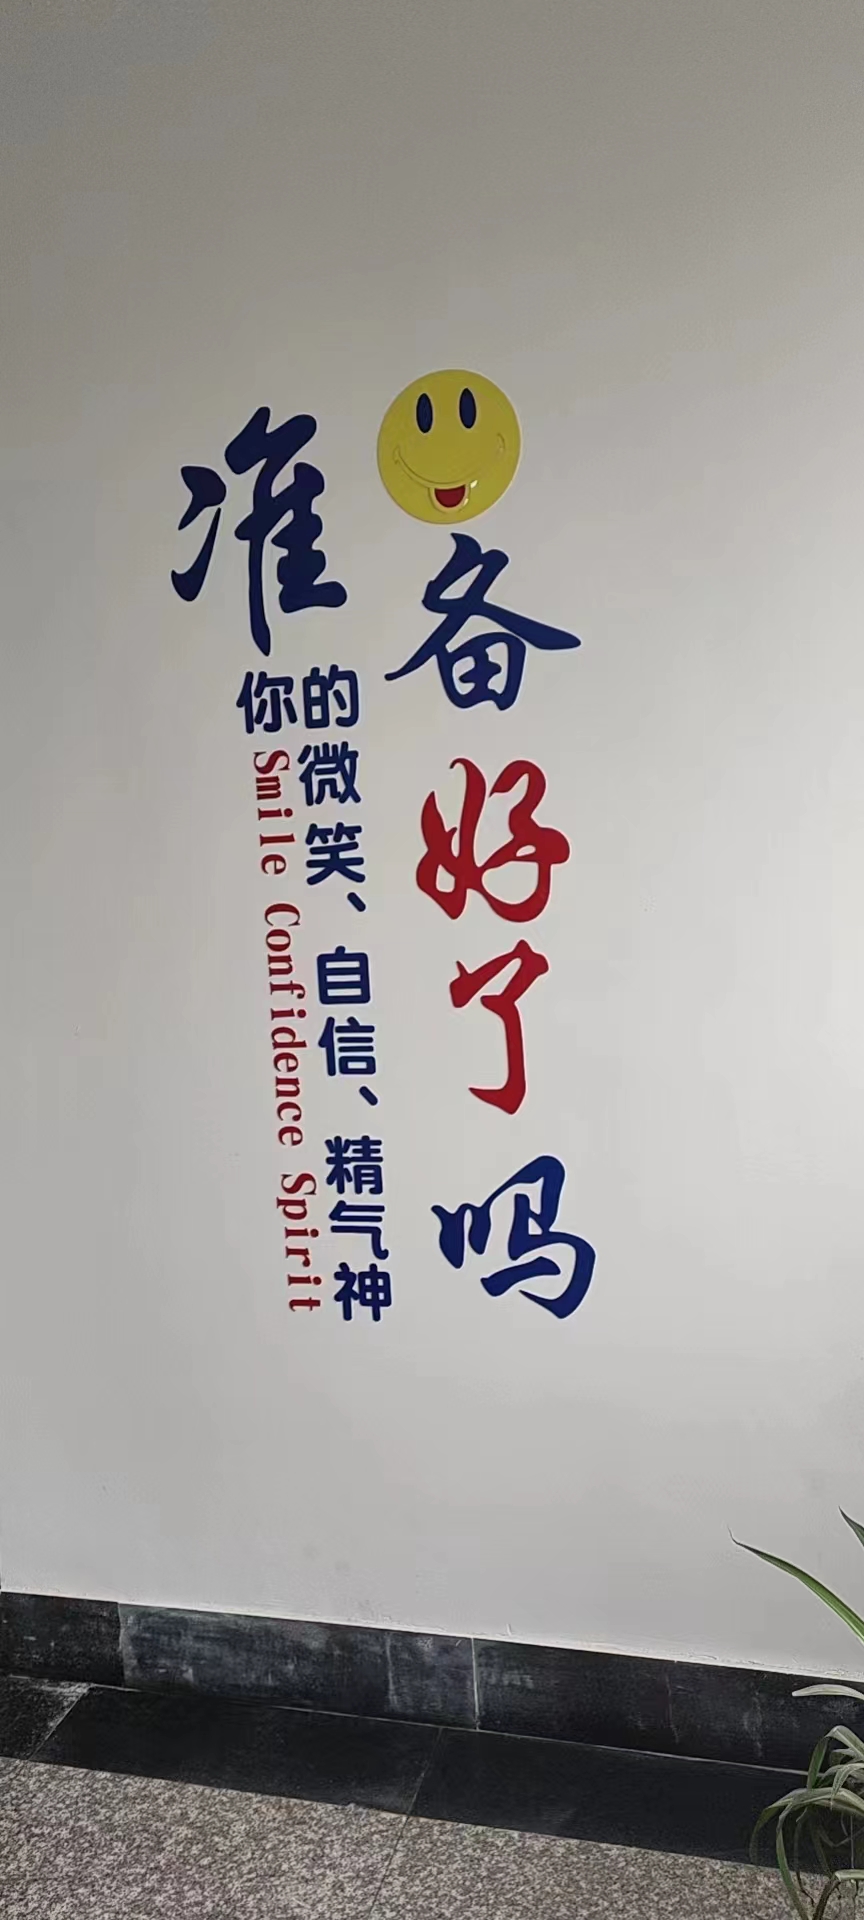 准备好了吗
你的微笑、自信、精气神
Smile Confidence Spirit